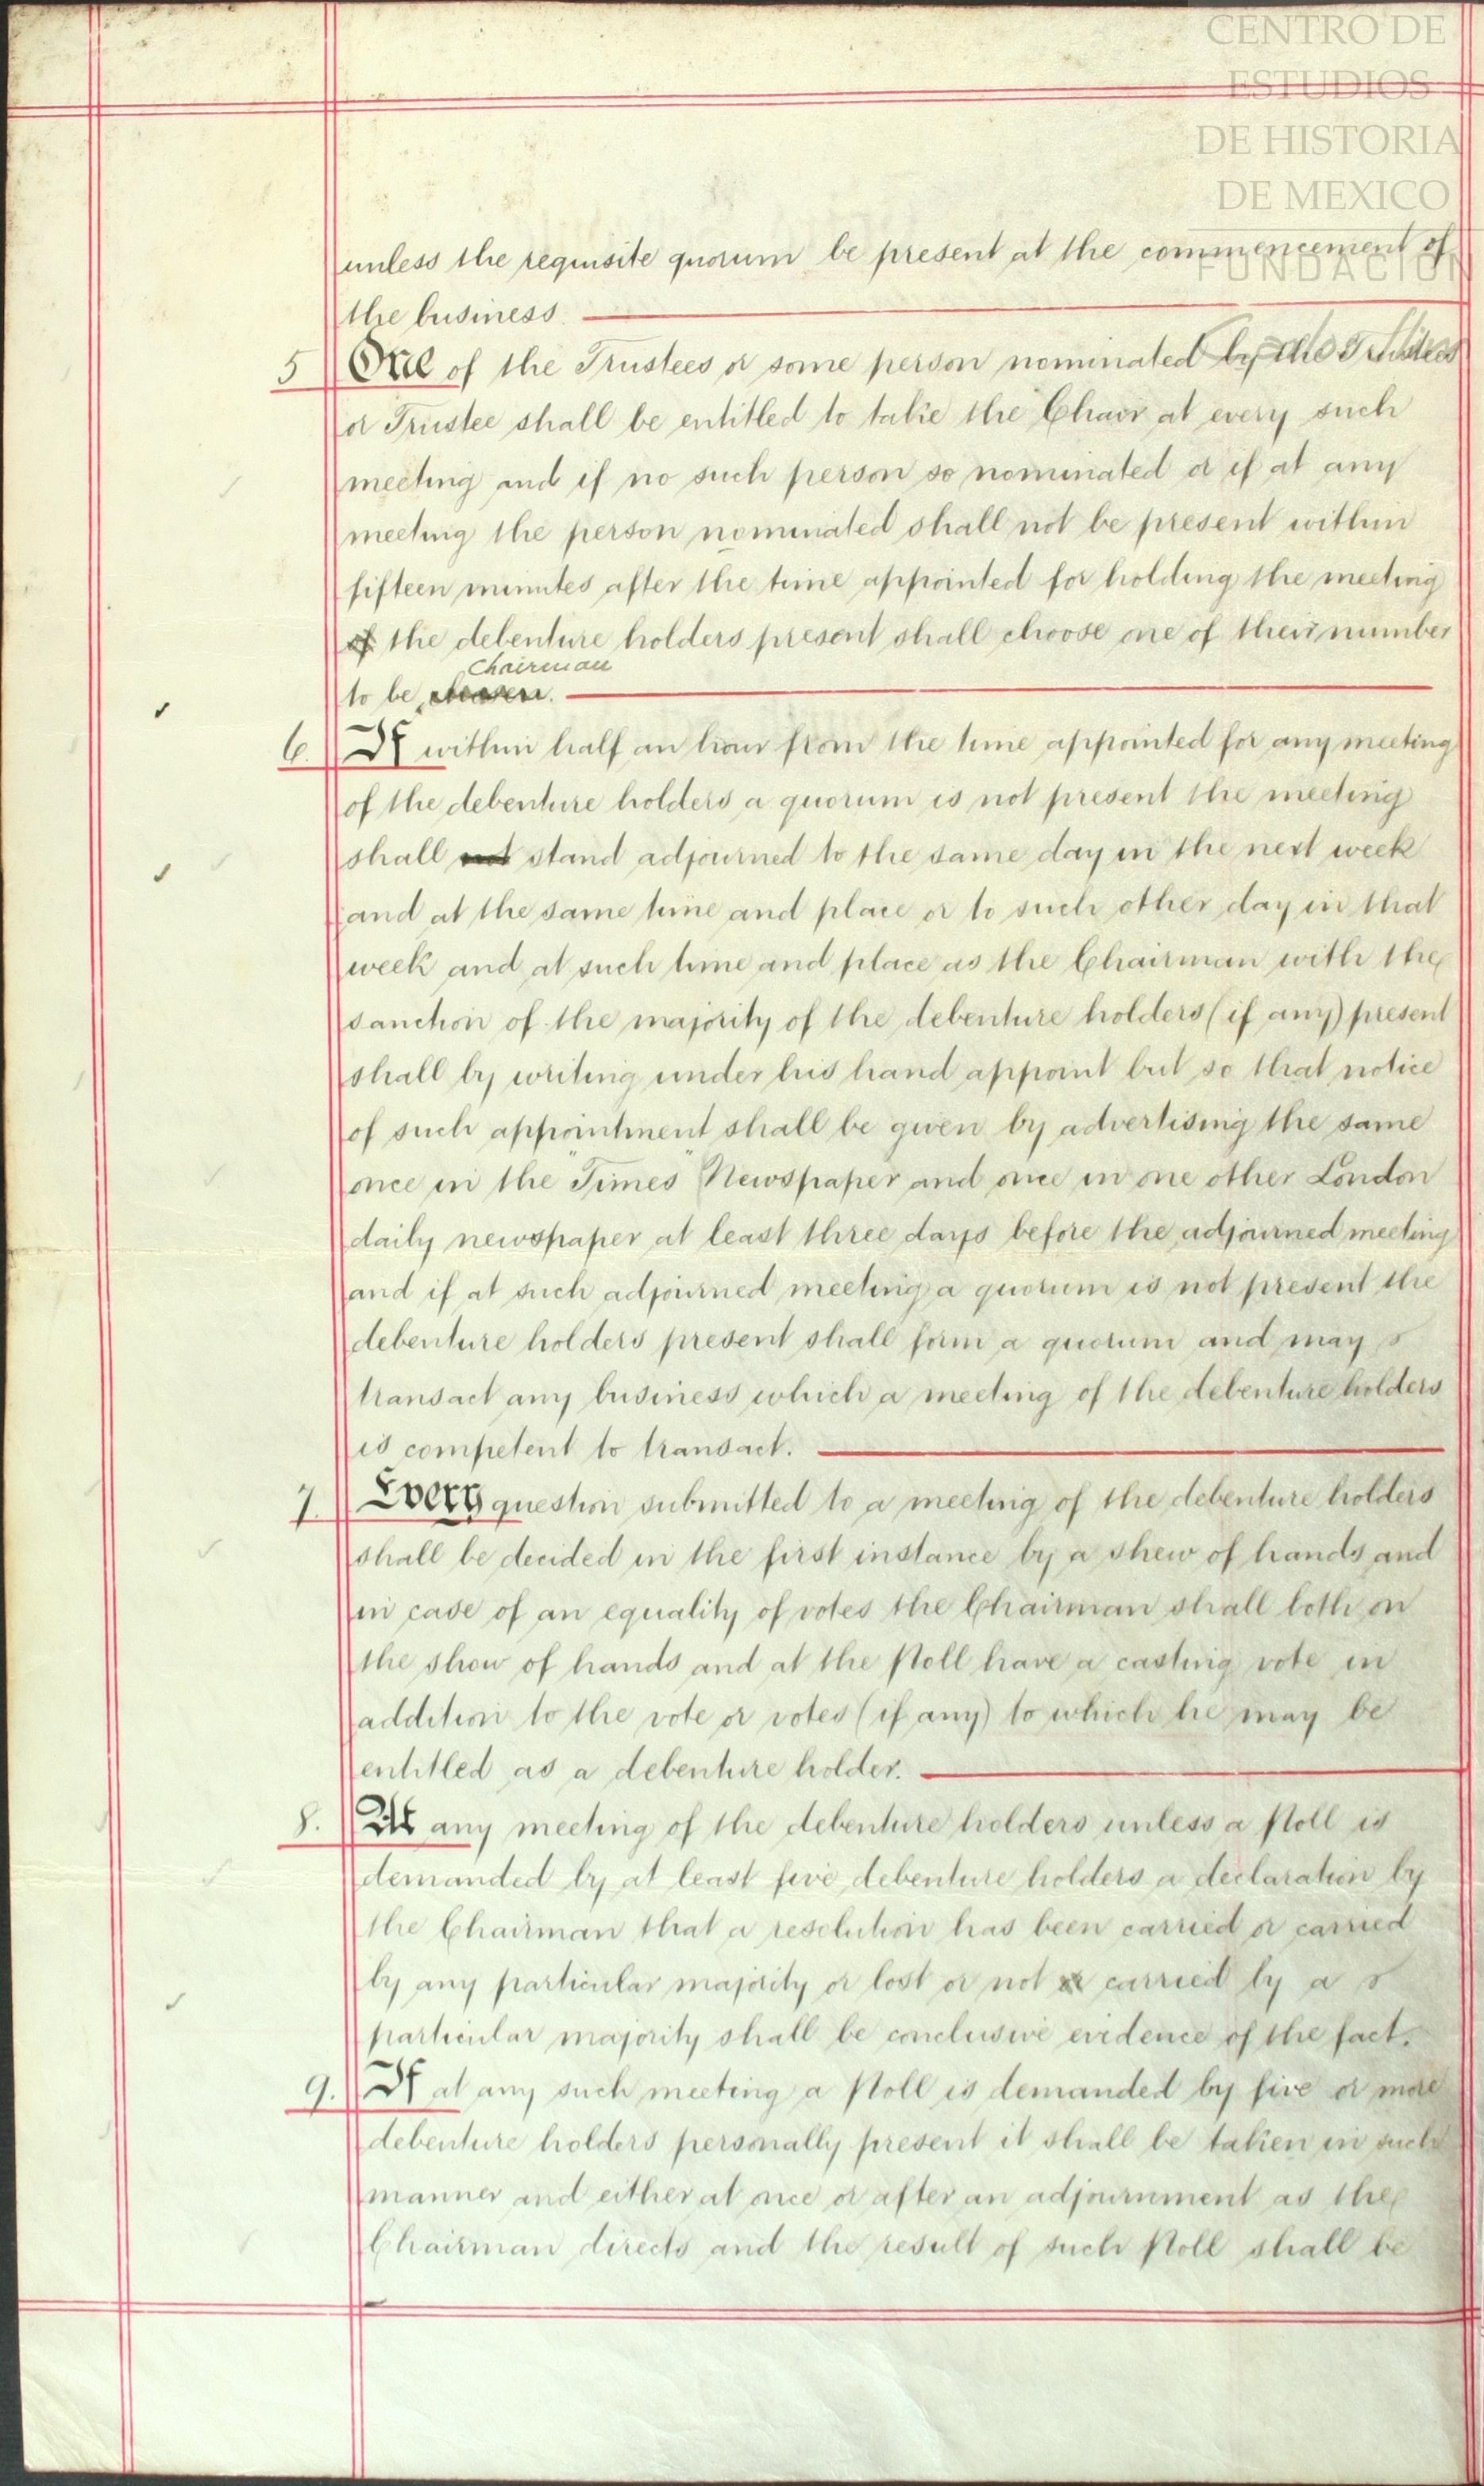 CENTRO DE
ESTUDIOS
DE HISTORIA
DE MEXICO
FUNDACIÓN
unless the requisite quorum be present at the commencement of
the business.
5 One of the Trustees or some person nominated by the Trustees
or Trustee shall be entitled to take the Chair at every such
meeting and if no such person so nominated or if at any
meeting the person nominated shall not be present within
fifteen minutes after the time appointed for holding the meeting
of the debenture holders present shall choose one of their number
Chairman
to be chosen.
6. If within half an hour from the time appointed for any meeting
of the debenture holders a quorum is not present the meeting
shall not stand adjourned to the same day in the next week
and at the same time and place or to such other day in that
week and at such time and place as the Chairman with the
sanction of the majority of the debenture holders (if any) present
shall by writing under his hand appoint but so that notice
of such appointment shall be given by advertising the same
once in the "Times" Newspaper and once in one other London
daily newspaper at least three days before the adjourned meeting
and if at such adjourned meeting a quorum is not present the
debenture holders present shall form a quorum and may
transact any business which a meeting of the debenture holders
is competent to transact.
7. Every question submitted to a meeting of the debenture holders
shall be decided in the first instance by a shew of hands and
in case of an equality of votes the Chairman shall both on
the show of hands and at the Poll have a casting vote in
addition to the vote or votes (if any) to which he may be
entitled as a debenture holder.
8. At any meeting of the debenture holders unless a Poll is
demanded by at least five debenture holders a declaration by
the Chairman that a resolution has been carried or carried
by any particular majority or lost or not carried by a
particular majority shall be conclusive evidence of the fact.
9. If at any such meeting a Poll is demanded by five or more
debenture holders personally present it shall be taken in such
manner and either at once or after an adjournment as the
Chairman directs and the result of such Poll shall be